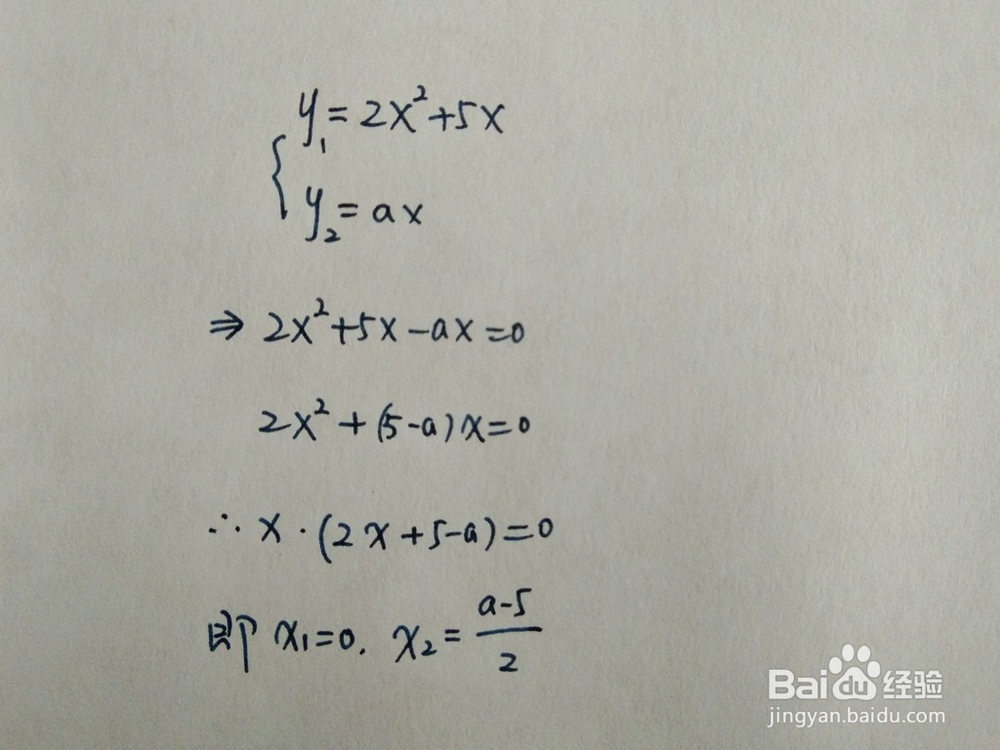 y₁=2x²+5x
y₂=ax
⇒ 2x²+5x-ax=0
2x²+(5-a)x=0
∴ x·(2x+5-a)=0
即 x₁=0. x₂=\frac{a-5}{2}
Baidu经验
jingyan.baidu.com